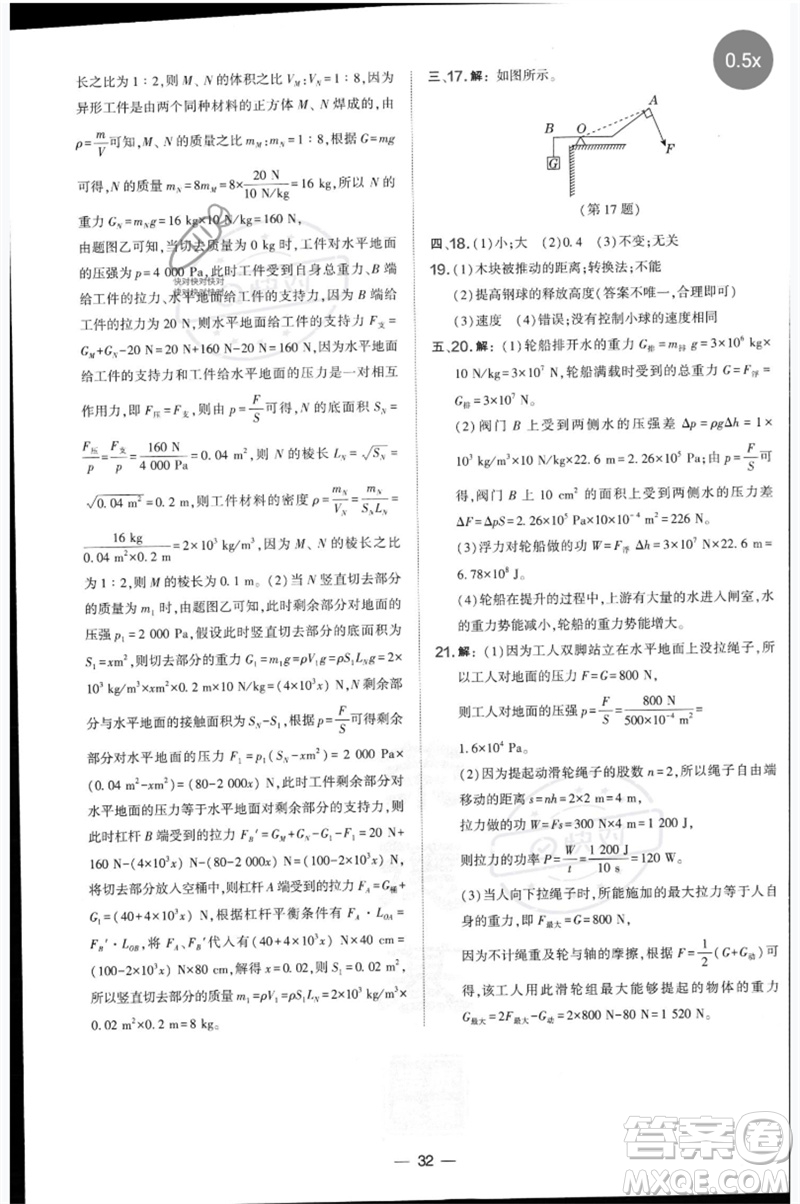 长之比为 1∶2，则 M、N 的体积之比 V_M∶V_N=1∶8，因为
异形工件是由两个同种材料的正方体 M、N 焊成的，由
ρ=m/V可知，M、N 的质量之比 m_M∶m_N=1∶8，根据 G=mg
可得，N 的质量 m_N=8m_M=8×20 N/10 N/kg=16 kg，所以 N 的
重力 G_N=m_N g=16 kg×10 N/kg=160 N。
由题图乙可知，当切去质量为 0 kg 时，工件对水平地面
的压强 p=4 000 Pa，此时工件受到自身总重力、B 端
给工件的拉力、水平地面给工件的支持力，此时 B 端
给工件的拉力为 20 N，则水平地面给工件的支持力 F支=
G_M+G_N-F_B=20 N+160 N-20 N=160 N，因为水平地面
给工件的支持力和工件给水平地面的压力是一对相互
作用力，即 F压=F支，则由 p=F/S可得，N 的底面积 S_N=
F压/p=F支/p=160 N/4 000 Pa=0.04 m²，所以 N 的棱长 L_N=√S_N=
√0.04 m²=0.2 m，则工件材料的密度 ρ=m_N/V_N=m_N/S_N L_N=
16 kg/0.04 m²×0.2 m=2×10³ kg/m³，因为 M、N 的棱长之比
为 1∶2，则 M 的棱长为 0.1 m。(2)当 N 竖直切去部分
的质量为 m₁ 时，由题图乙可知，此时剩余部分对地面的
压强 p₁=2 000 Pa，假设此时竖直切去部分的底面积为
S₁=xm²，则切去部分的重力 G₁=m₁g=ρV₁g=ρS₁L_N g=2×
10³ kg/m³×xm²×0.2 m×10 N/kg=(4×10³x) N，N 剩余部
分与水平地面的接触面积为 S_N-S₁，根据 p=F/S可得剩余
部分对水平地面的压力 F₁=p₁(S_N-xm²)=2 000 Pa×
(0.04 m²-xm²)=(80-2 000x) N，因此工件剩余部分对
地面的压力等于水平地面对剩余部分的支持力，则此
时杠杆 B 端受到的拉力 F_B′=G_M+G_N-G₁-F₁=20 N+
160 N-(4×10³x) N-(80-2 000x) N=(100-2×10³x) N，
将切去部分放入空桶中，则杠杆 A 端受到的拉力 F_A=G桶+
G₁=(40+4×10³x) N，根据杠杆平衡条件有 F_A·L_OA=
F_B′·L_OB，将 F_A、F_B′代入有(40+4×10³x) N×40 cm=
(100-2×10³x) N×80 cm，解得 x=0.02，则 S₁=0.02 m²，
所以竖直切去部分的质量 m₁=ρV₁=ρS₁L_N=2×10³ kg/m³×
0.02 m²×0.2 m=8 kg。
三、17. 解：如图所示。
A
B O
G F
(第 17 题)
四、18. (1)小；大 (2)0.4 (3)不变；无关
19. (1)木块被推动的距离；转换法；不能
(2)提高钢球的释放高度(答案不唯一，合理即可)
(3)速度 (4)错误；没有控制小球的速度相同
五、20. 解：(1)轮船排开水的重力 G排=m排 g=3×10⁶ kg×
10 N/kg=3×10⁷ N，轮船满载时受到的总重力 G=F浮=
G排=3×10⁷ N。
(2)阀门 B 上受到两侧水的压强差 Δp=ρgΔh=1×
10³ kg/m³×10 N/kg×22.6 m=2.26×10⁵ Pa；由 p=F/S可
得，阀门 B 上 10 cm² 的面积上受到两侧水的压力差
ΔF=ΔpS=2.26×10⁵ Pa×10×10⁻⁴ m²=226 N。
(3)浮力对轮船做的功 W=F浮 Δh=3×10⁷ N×22.6 m=
6.78×10⁸ J。
(4)轮船在提升的过程中，上游有大量的水进入闸室，水
的重力势能减小，轮船的重力势能增大。
21. 解：(1)因为工人双脚站立在水平地面上没拉绳子，所
以工人对地面的压力 F=G=800 N，
则工人对地面的压强 p=F/S=800 N/500×10⁻⁴ m²=
1.6×10⁴ Pa。
(2)因为提起动滑轮绳子的股数 n=2，所以绳子自由端
移动的距离 s=nh=2×2 m=4 m，
拉力做的功 W=Fs=300 N×4 m=1 200 J，
则拉力的功率 P=W/t=1 200 J/10 s=120 W。
(3)当人向下拉绳子时，所能施加的最大拉力等于人自
身的重力，即 F最大=G=800 N，
因为不计绳重及轮与轴的摩擦，根据 F=1/2(G+G动)可
得，该工人用此滑轮组最大能够提起的物体的重力
G最大=2F最大-G动=2×800 N-80 N=1 520 N。
0.5x
快对快对快对
快对快对快对
快对
快对
32
答案圈
MXQE.COM